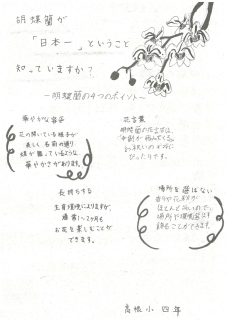 胡蝶蘭が
「日本一」ということ
知っていますか？
〜胡蝶蘭の4つのポイント〜
華やかな容姿
花の開いている様子が
美しく、名前の通り
蝶が舞っているような
華やかさがあります。
花言葉
胡蝶蘭の花言葉は、
「幸福が飛んでくる」
お祝いの
ぴったりです。
長持ちする
生育環境によりますが、
通常1〜2ヶ月も
お花を楽しむことが
できます。
場所を選ばない
香りや花粉が
ほとんどないので、
場所や環境を選ばず
飾ることができます。
高根小 四年